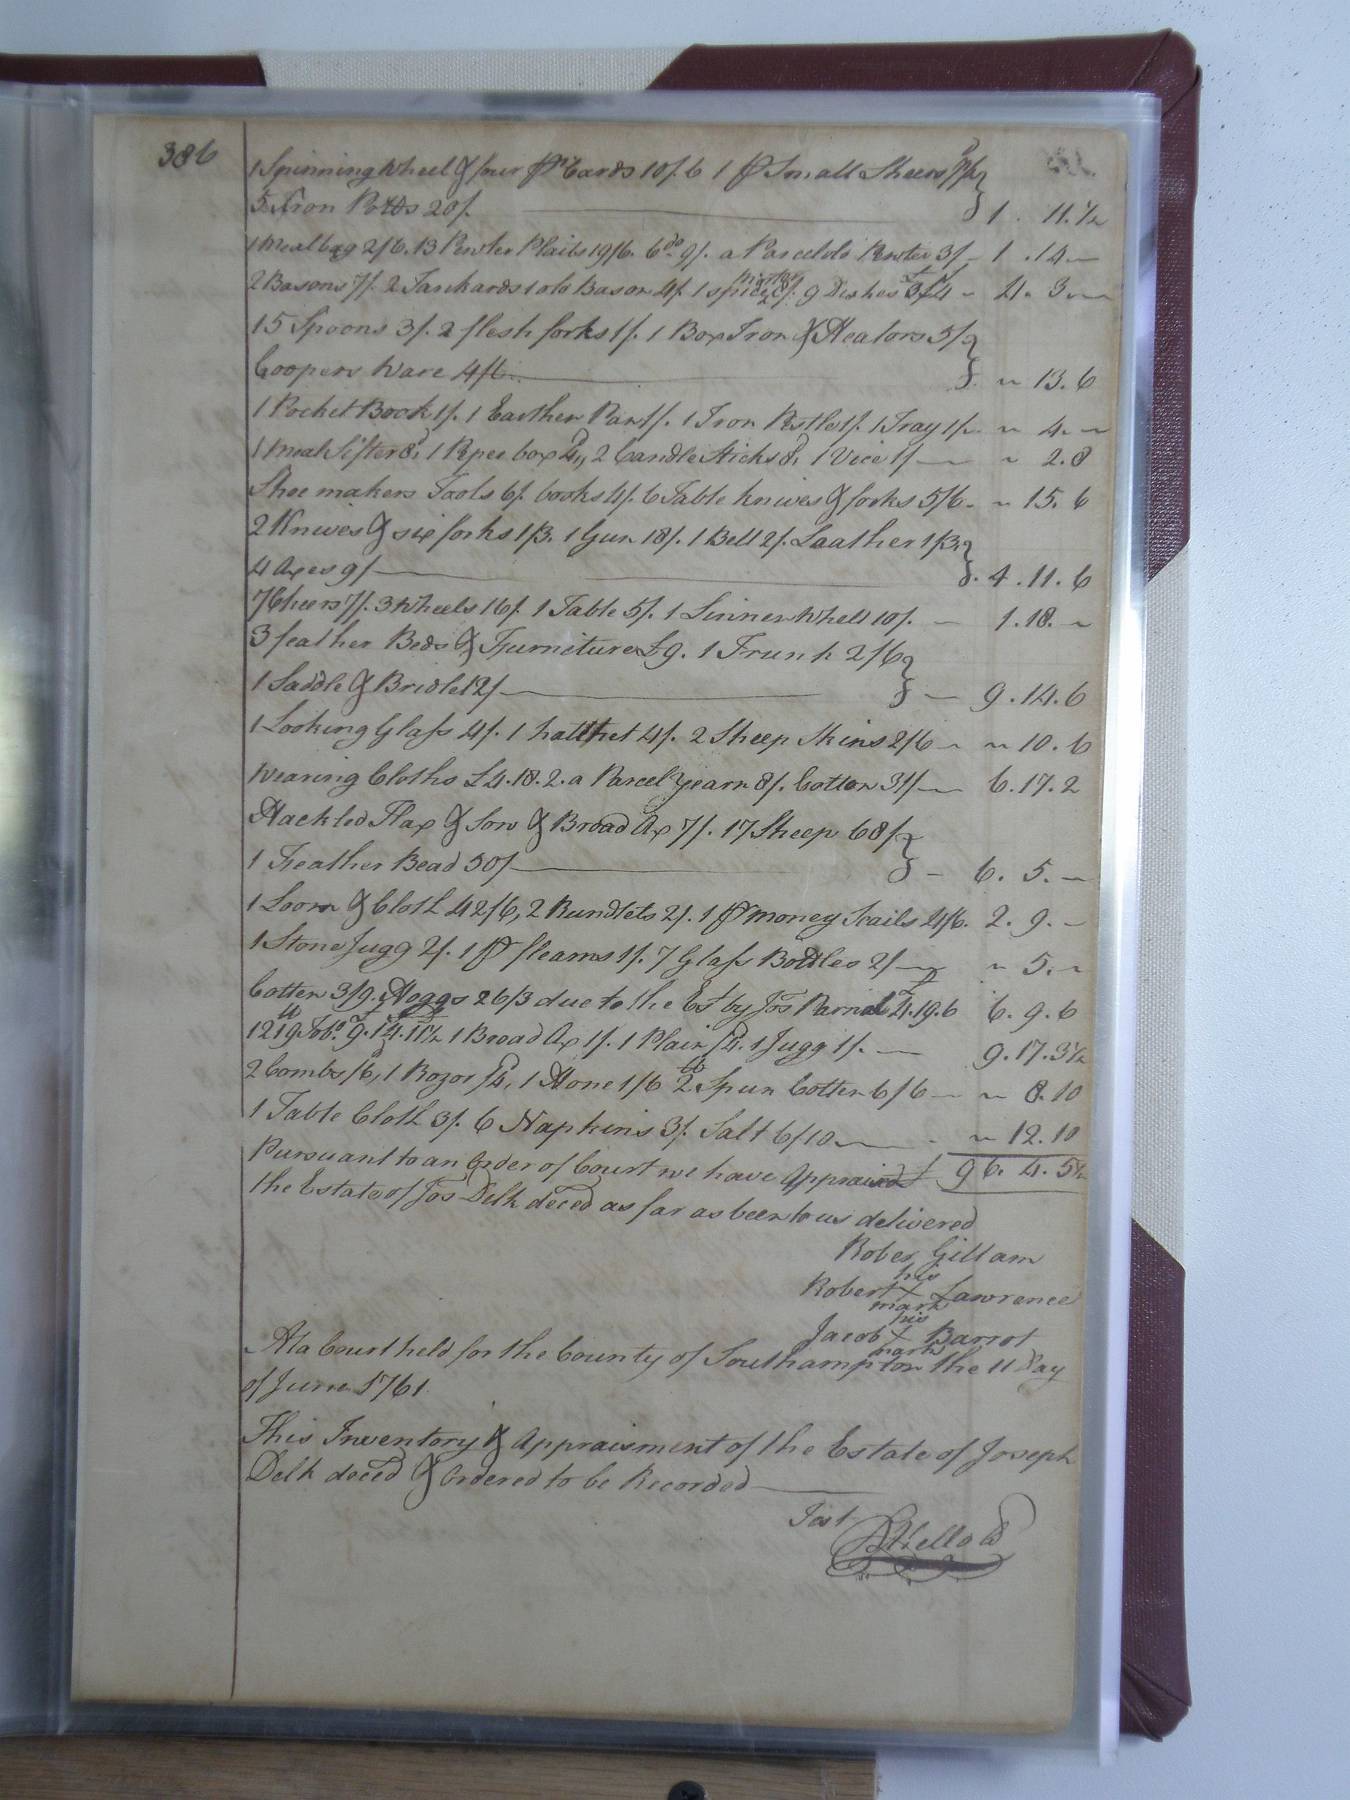 386
1 Spinning Wheel & four pr Cards 10/.6 1 pr Small Sheers
5 Iron Potts 20/. 1 . 11. ½
1 Meal bag 2/6. 13 Pewter Plaits 19/6. 6 do 9/. a Parcel old Pewter 3/ 1 . 14 
2 Basons 7/. 2 Tankards 1 old Bason 4/. 1 spice mortar 9 Dishes 4. 3. 
15 Spoons 3/. 2 flesh forks 1/. 1 Box Iron & Heators 5/
Coopers Ware 4/6. 13. 6
1 Pocket Book 1/. 1 Earthen Pan 1/. 1 Iron Pestle 1/. 1 Tray 1/. 4. 
1 Meal Sifter 8d, 1 Pepee box 4d, 2 Candle Sticks 8d, 1 Vice 1/ 2. 8
Shoe makers Tools 6/. books 4/. 6 Table knives & forks 5/6. 15. 6
2 Knives & six forks 1/3. 1 Gun 18/. 1 Bell 2/. Leather 1/3.
4 Axes 9/ 4 . 11. 6
7 Cheers 7/. 3 Wheels 16/. 1 Table 5/. 1 Linnen Whell 10/. 1. 18. 
3 feather Beds & Furniture £9. 1 Trunk 2/6
1 Saddle & Bridle 12/ 9 . 14. 6
1 Looking Glass 4/. 1 hatchet 4/. 2 Sheep Skins 2/6 10. 6
Wearing Cloths £4.18.2. a Parcel yearn 8/. Cotton 31/ 6. 17. 2
Hackled Flax & Tow & Broad Ax 7/. 17 Sheep 68/
1 Feather Bead 50/ 6. 5. 
1 Loom & Cloth 42/6, 2 Rundlets 2/. 1 pr money Scails 4/6. 2. 9. 
1 Stone Jugg 2/. 1 pr fleams 1/. 7 Glass Bottles 2/ 5. 
Cotten 3/9. Hoggs 26/3 due to the Est by Jos Parnal £4.19.6 6. 9. 6
1219 Tobo £9.14.11½ 1 Broad Ax 1/. 1 Plain /4d. 1 Jugg 1/. 9. 17. 3½
2 Combs /6d, 1 Rozor /4d, 1 Hone 1/6 2 lb Spun Cotten 6/6 8. 10
1 Table Cloth 3/. 6 Napkins 3/. Salt 6/10 12. 10
Pursuant to an Order of Court we have Appraised £ 96. 4. 5½
the Estate of Jos Delk deced as far as been to us delivered
Rober Gillam
his
Robert X Lawrence
mark
his
Jacob X Barrot
mark
At a Court held for the County of Southampton the 11 Day
of June 1761.
This Inventory & Appraisment of the Estate of Joseph
Delk deced & Ordered to be Recorded
Test